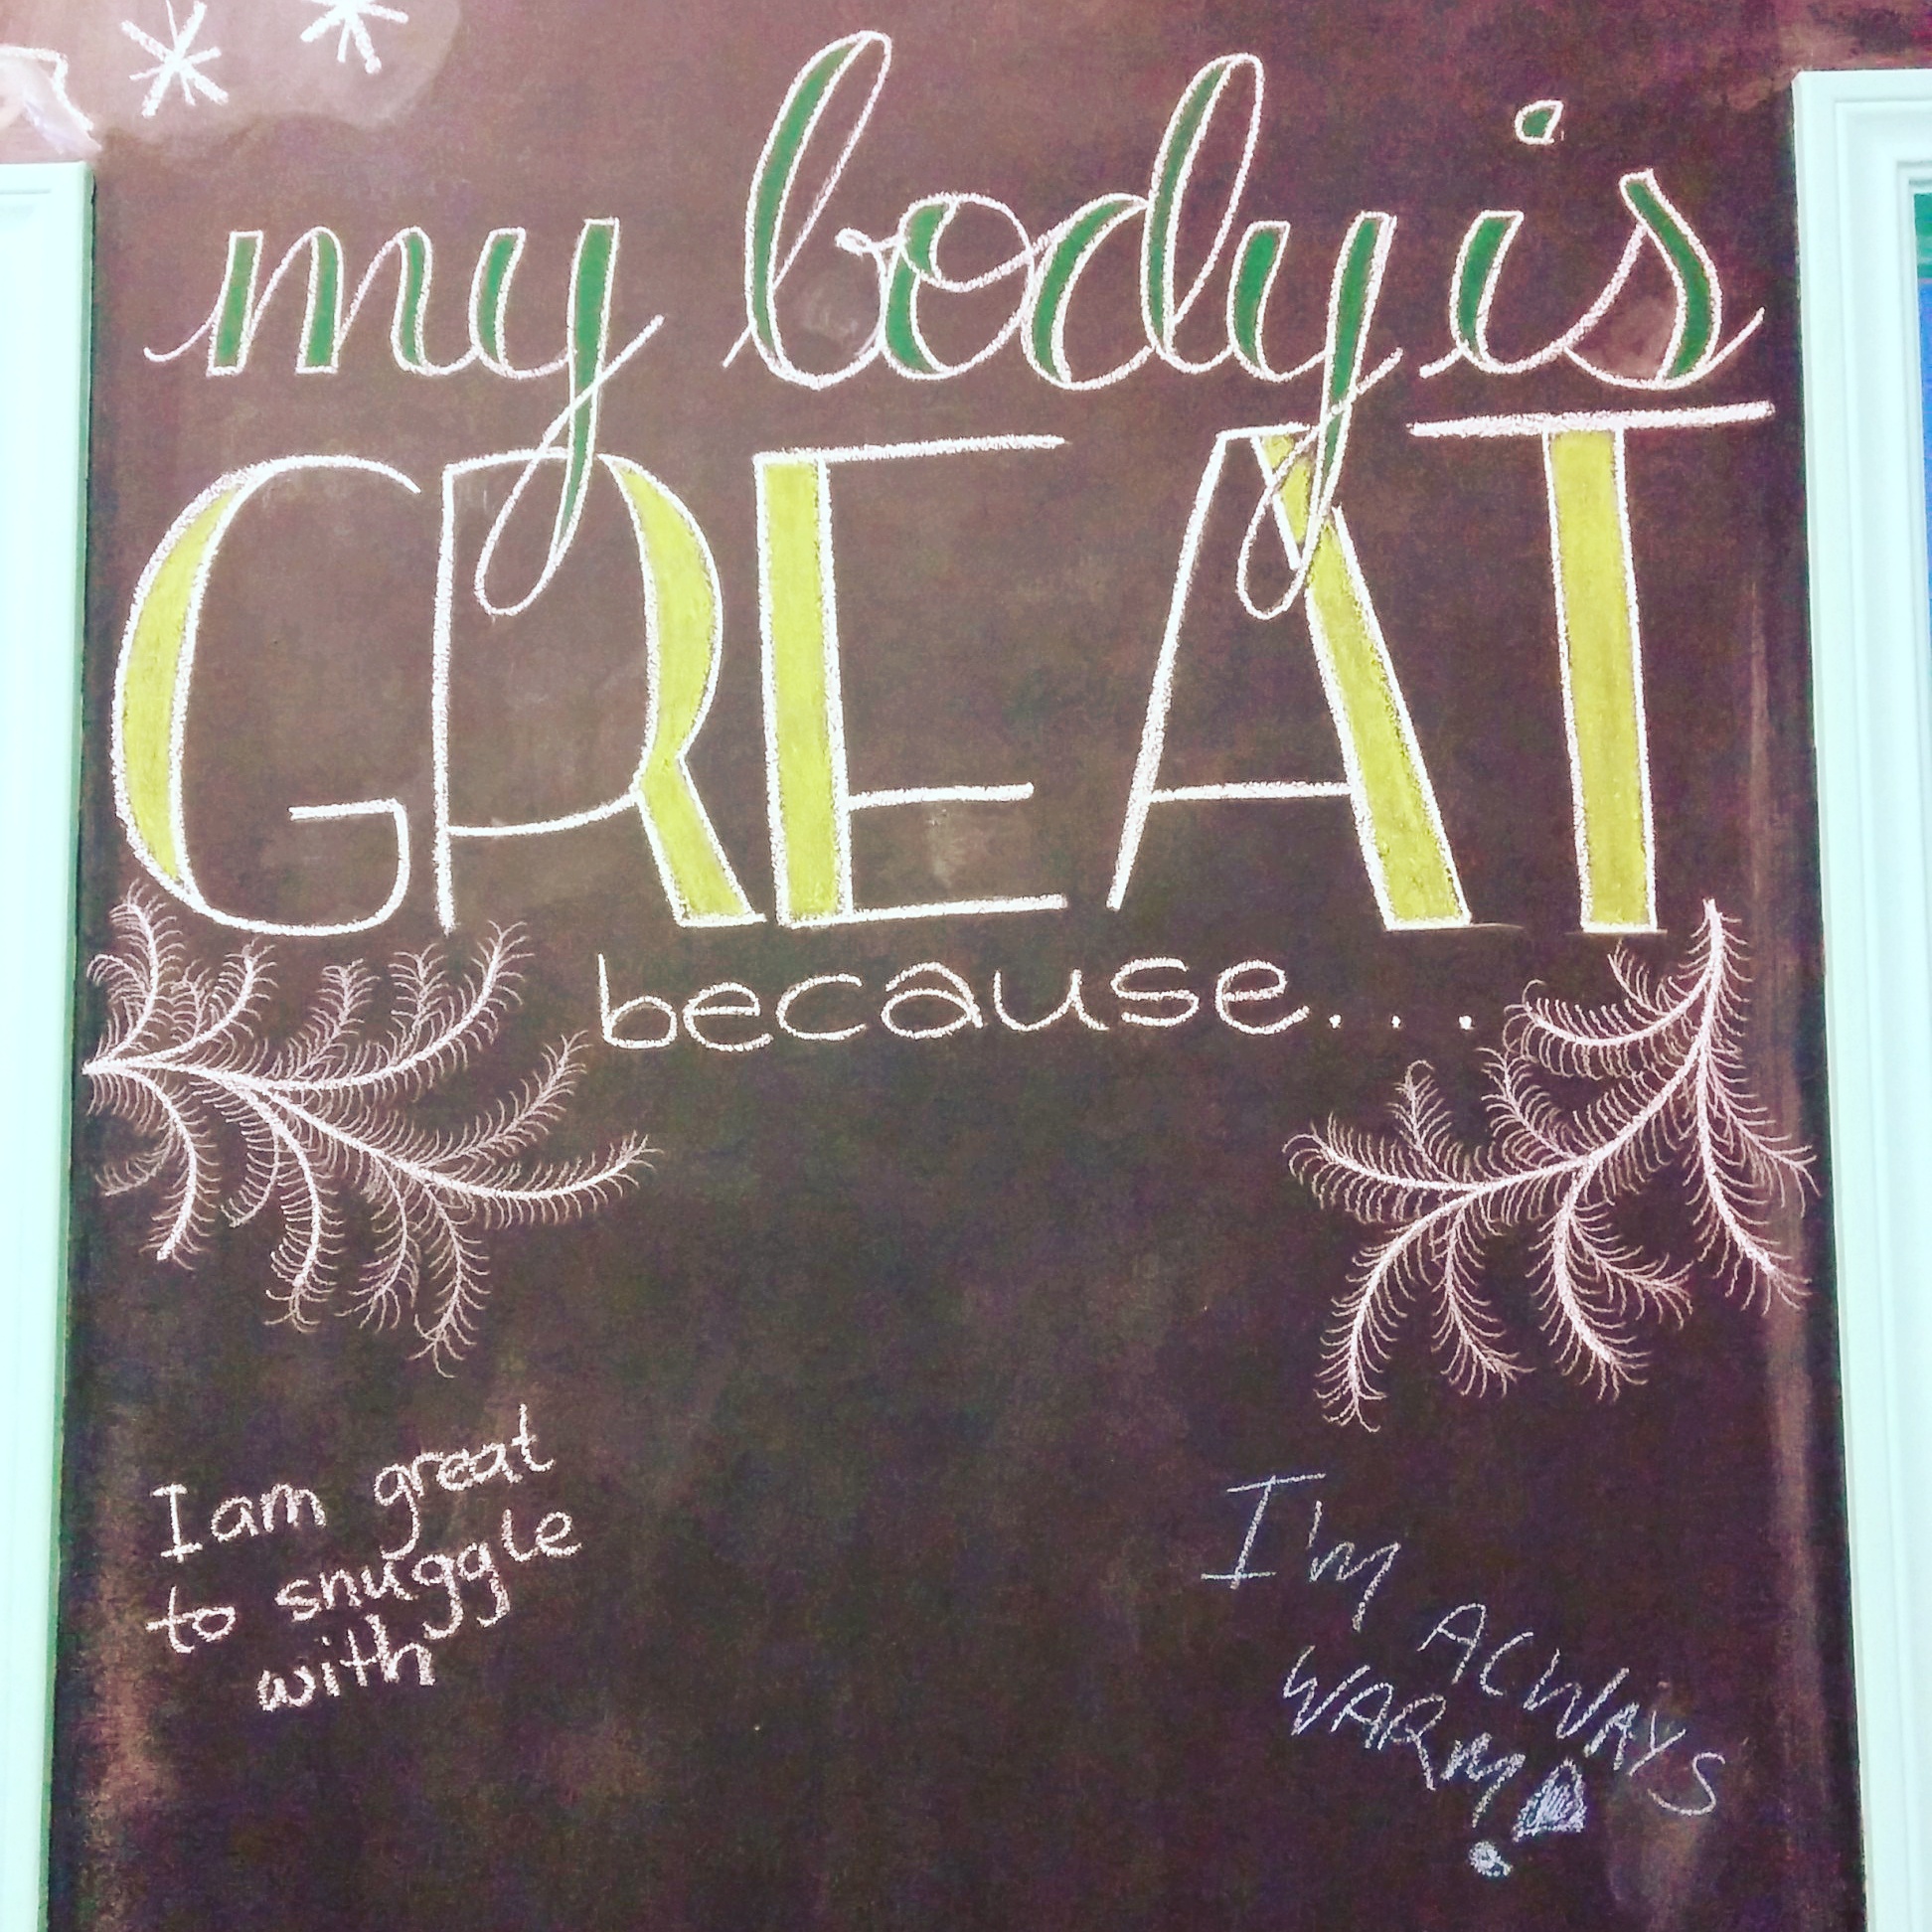 my body is
GREAT
because...
I am great
to snuggle
with
I'm
ALWAYS
WARM!